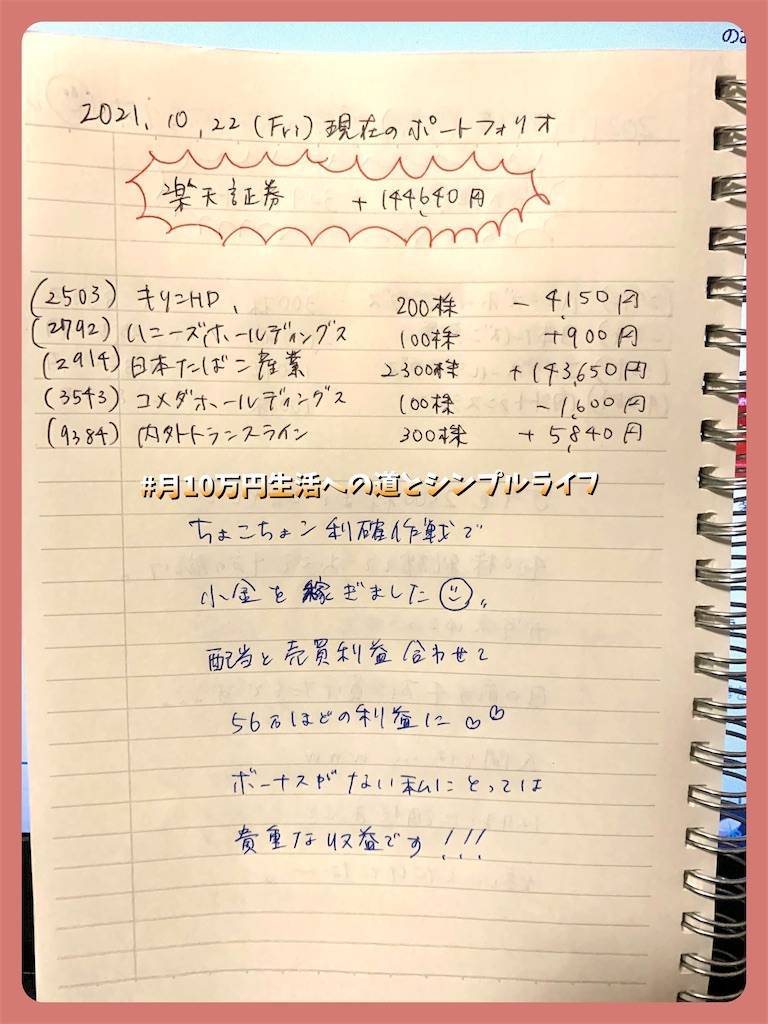 のお
2021.10.22(Fri)現在のポートフォリオ
楽天証券 +144,640円
(2503) キリンHD、 200株 -4,150円
(2792) ハニーズホールディングス 100株 +900円
(2914) 日本たばこ産業 2300株 +143,650円
(3543) コメダホールディングス 100株 -1,600円
(9384) 内外トランスライン 300株 +5,840円
#月10万円生活への道とシンプルライフ
ちょこちょこ利確作戦で
小金を稼ぎました☺,,
配当と売買利益合わせて
56万ほどの利益に♡♡
ボーナスがない私にとっては
貴重な収益です!!!